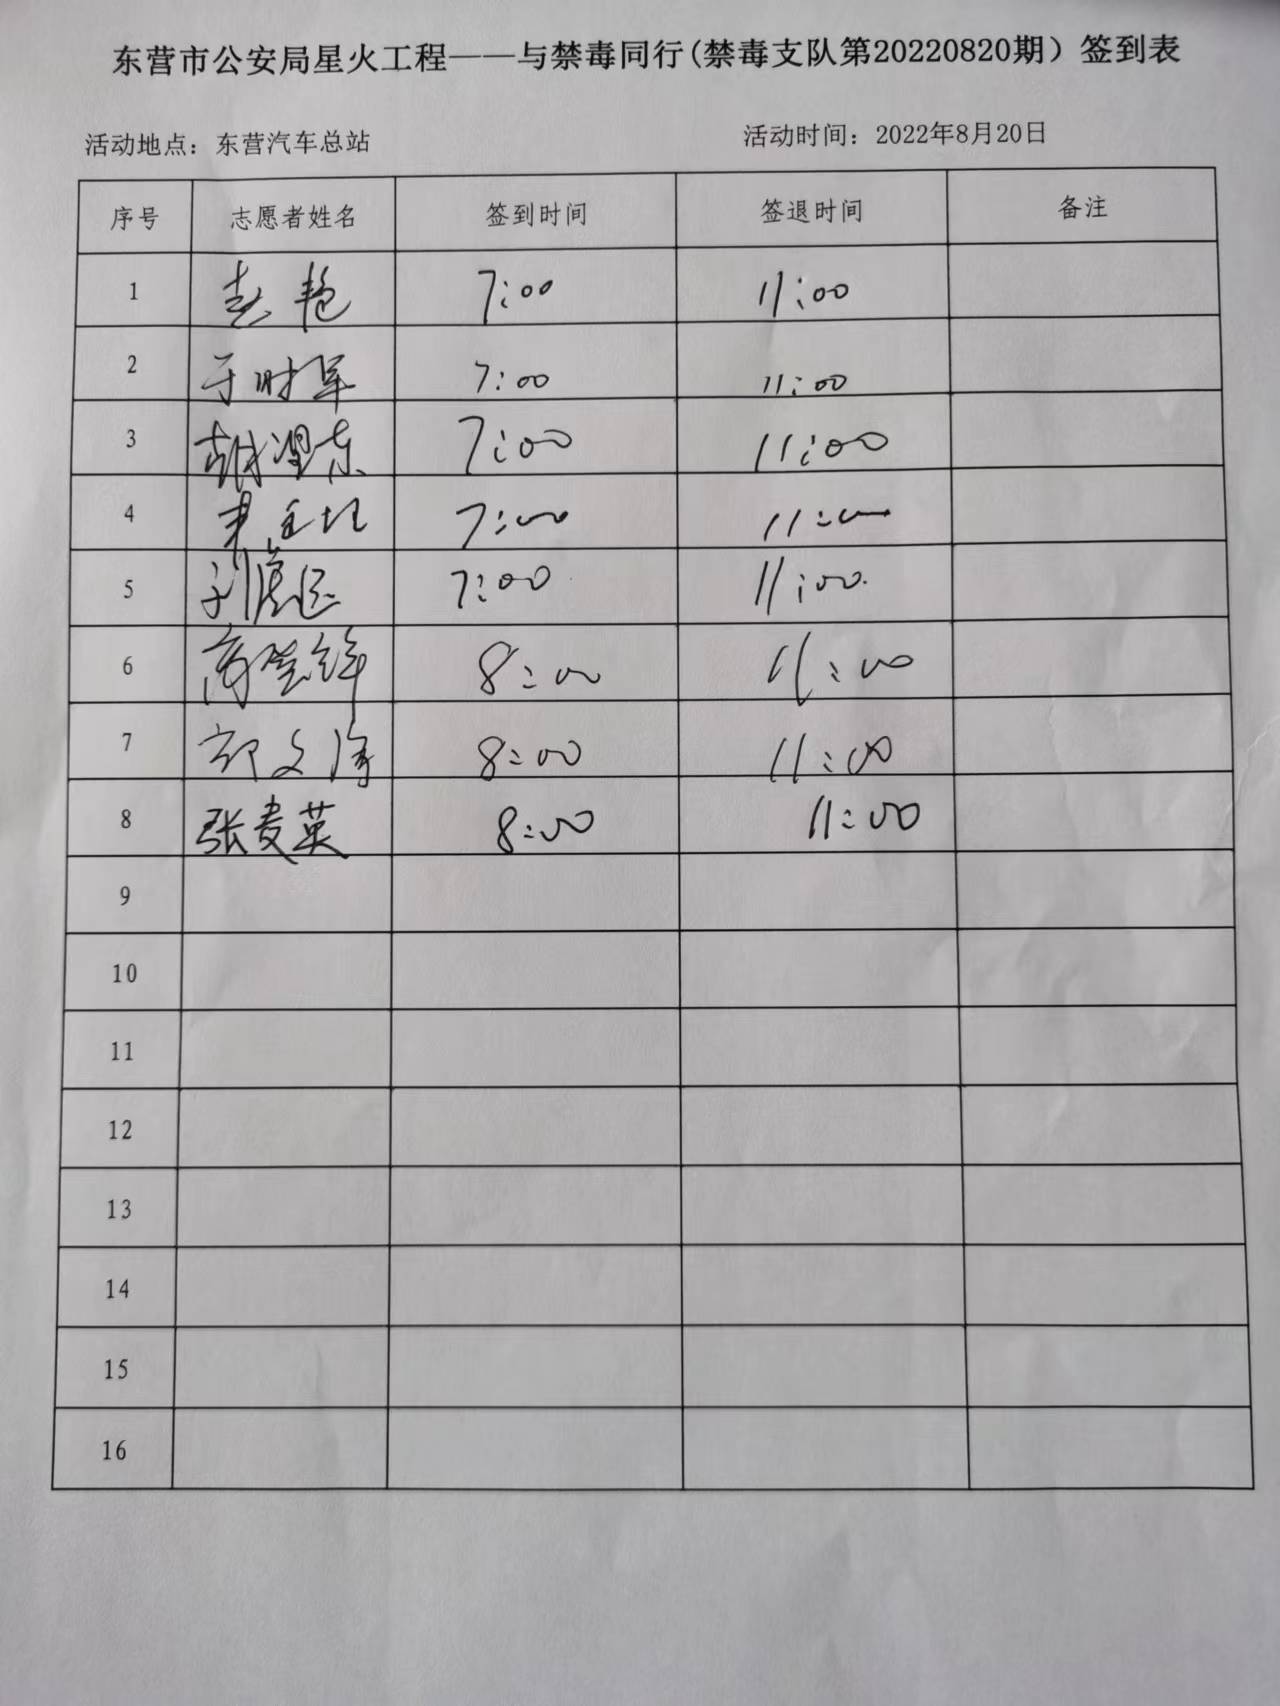 东营市公安局星火工程——与禁毒同行(禁毒支队第20220820期）签到表
活动地点：东营汽车总站 活动时间：2022年8月20日
序号 志愿者姓名 签到时间 签退时间 备注
1 赵艳 7:00 11:00
2 于时军 7:00 11:00
3 7:00 11:00
4 7:00 11:00
5 7:00 11:00
6 8:00 11:00
7 8:00 11:00
8 张麦英 8:00 11:00
9
10
11
12
13
14
15
16